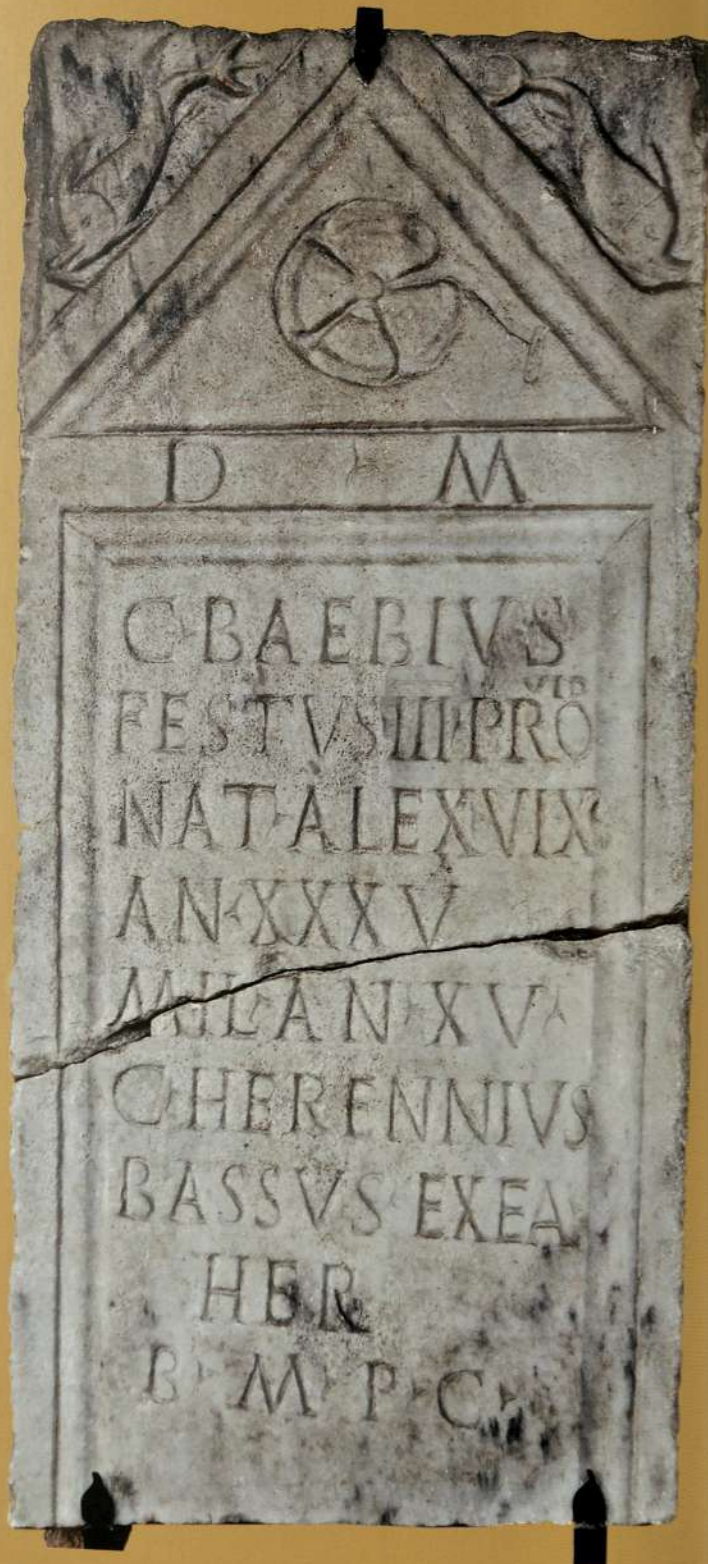 D M
C·BAEBIVS
FESTVS·III·PRO
VID
NAT·ALEX·VIX
AN·XXXV
MIL·AN·XV
C·HERENNIVS
BASSVS EX EA
HER
B·M·P·C